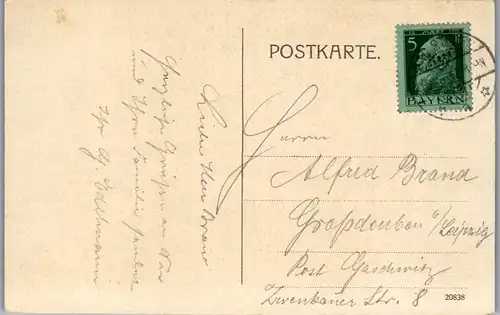 POSTKARTE.
5 Pf
BAYERN
Lieber Herr Brand
Herzliche Grüsse an Sie
und Ihre Familie sendet
Ihr G. Edelmann
Herrn
Alfred Brand
Großdeuben b/Leipzig
Post Gaschwitz
Zwenkauer Str. 8
20838